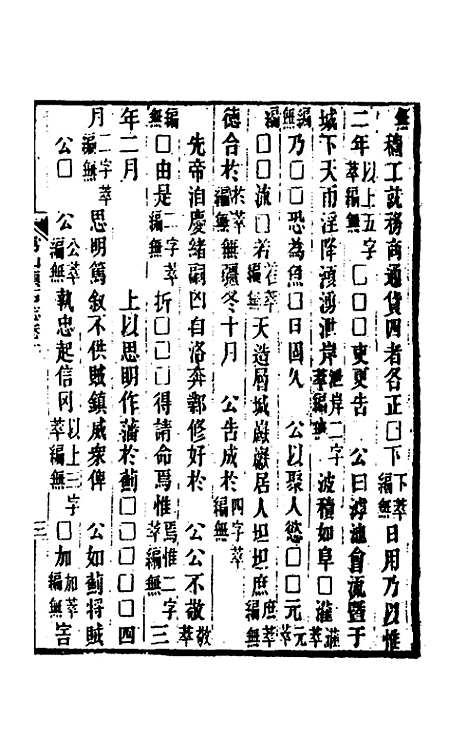 無穡工就務商通貨四者各正□下下萃編無日用乃以惟
二年以上五字萃編無□□□吏更告　公曰滹沱會流暨于
城下天雨淫降湏湧泄岸泄岸二字萃編缺波積如阜□灌灌萃
編無乃□□恐為魚□日固久　公以聚人慾□□元元元萃
編無□□流□若若萃編無天造層城巖巖居人坦坦庶庶萃編無
德合於於萃編無疆冬十月　公告成於四字萃編無
先帝洎慶緒嗣凶自洛奔鄴修好於　公公不敬敬萃
編無□由是二字萃編無折□□□得請命焉惟焉惟二字萃編無三
年二月　上以思明作藩於薊□□□□□□四
月二字萃編無思明篤叙不供賊鎮威衆俾　公如薊将賊
公□　公公萃編無執忠起信冈以上三字萃編無□加加萃編無言
三